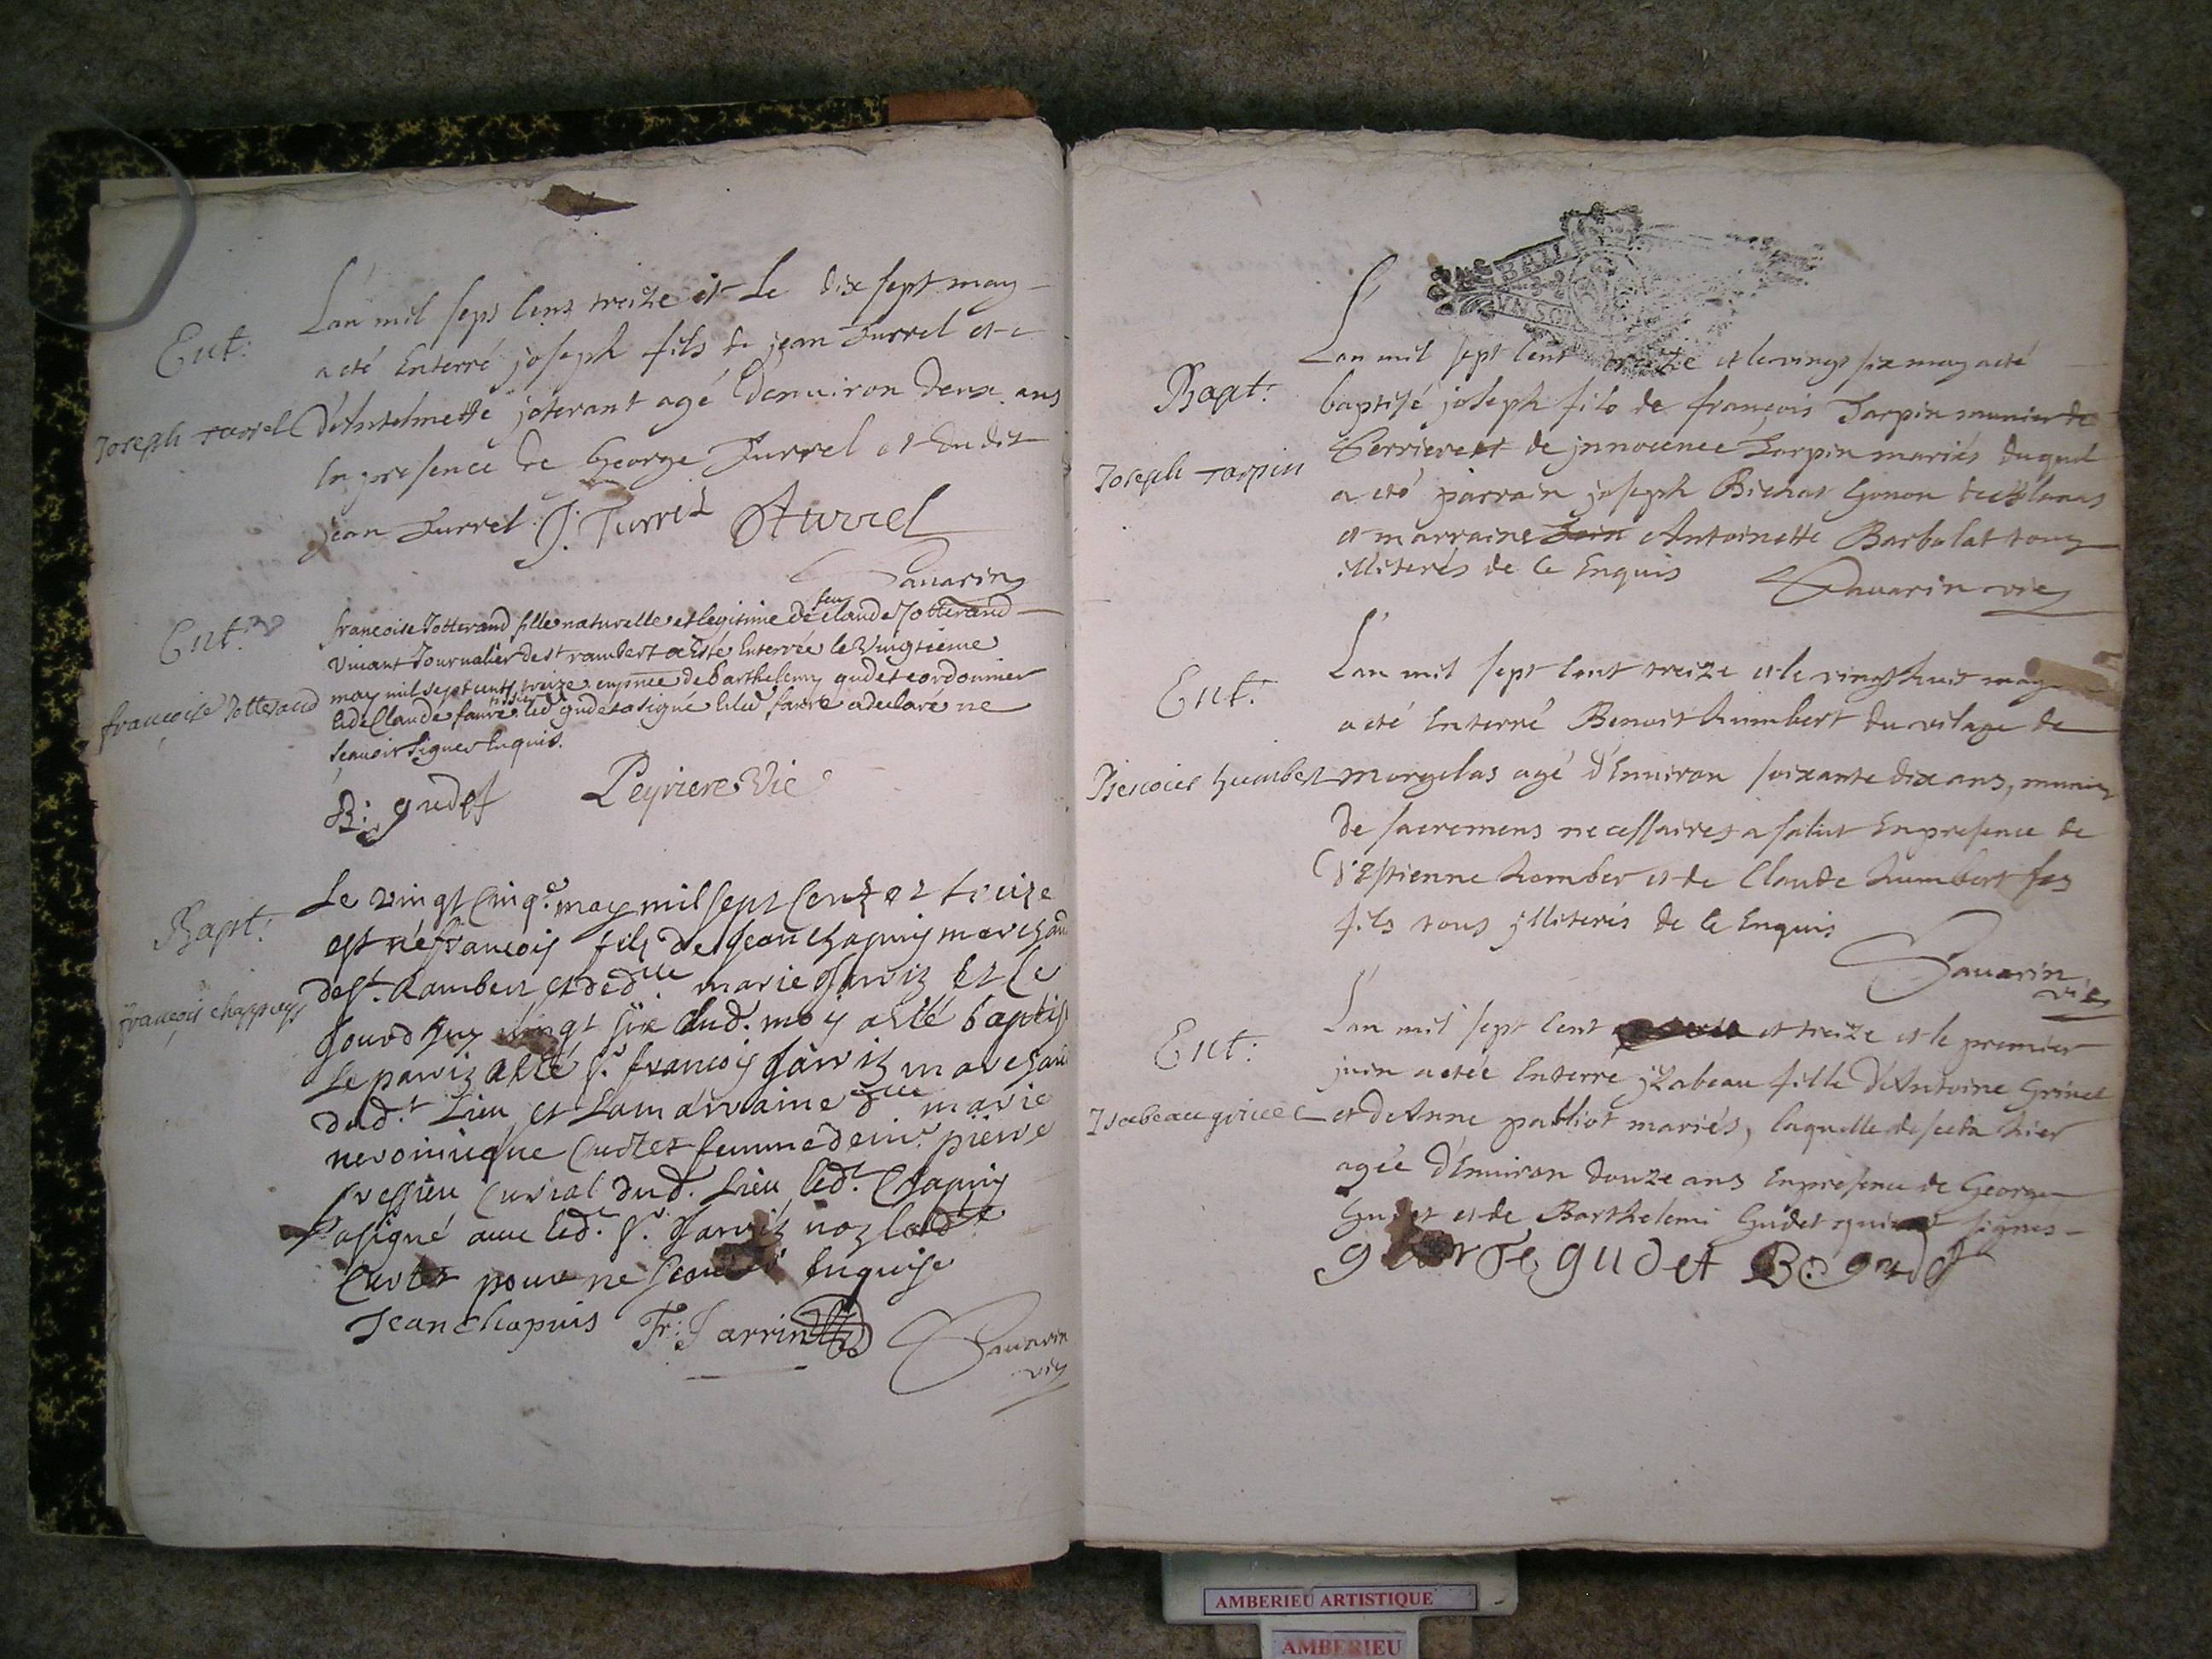 Ent:
Joseph Turrel
Lan mil sept cens treize et Le dix sept may
a eté Enterré joseph fils de jean Turrel et
d'Antelmette joterant agé d'enuiron deux ans
En presence de George Turrel et dudit
jean Turrel. J. Turrel GTurrel
Sauarin
Ent.
françoise Jotterand
feu
francoise Jotterand fille naturelle et legitime de claude Jotterand
viuant Journalier de st rambert a Esté Enterrée le Vingtieme
may mil sept cents treize en pnce de barthelemy gudet cordonnier
tissier
Et de Claude faure led gudet a signé et led faure a declaré ne
scauoir signer Enquis.
B: gudet Peyriere Vic
Bapt:
françois chappuys
Le vingt Cinqe may mil sept Centz et treize
est né francois fils de Jean Chapuis marchand
de st. Rambert et de dlle marie Jarrin Et Ce
Jourdhuy vingt six dud. may a esté baptisé
Le parrin a esté sr. francois Jarrin marchand
dud.t Lieu et La marraine dlle marie
neroinique Curtet femme de mr. pierre
Curial dud. Lieu led.t Chapuis
a signé auec led. sr. Jarrin non lad.te
Curtet pour ne scauoir Enquise
Jean Chapuis Fr: Jarrin Sauarin
vic
BAIL
Bapt:
Joseph Tarpin
Lan mil sept cent treize et le vingt six may a eté
baptisé joseph fils de françois Tarpin munier de
Serriere et de jnnocence Tarpin mariés duquel
a eté parrain joseph Bichat Gonon de
et marraine Antoinette Barbolat tous
illiterés de ce Enquis Sauarin vic
Ent:
Benoict humbert
Lan mil sept cent treize et le vingt huit may
a eté Enterré Benoist humbert du vilage de
morgelas agé d'Enuiron soixante dix ans, muni
de sacremens necessaires a salut En presence de
d'Estienne homber et de Claude humbert ses
fils tous jlliterés de ce Enquis
Sauarin
vic
Ent:
Isabeau grinet
Lan mil sept cent et treize et le premier
juin a etée Enterre jzabeau fille d'Antoine Grinet
et d'Anne palliot mariés, laquelle deceda hier
agée d'Enuiron douze ans En presence de George
Gudet et de Barthelemi Gudet qui signes
george gudet B: gudet
AMBERIEU ARTISTIQUE
AMBERIEU